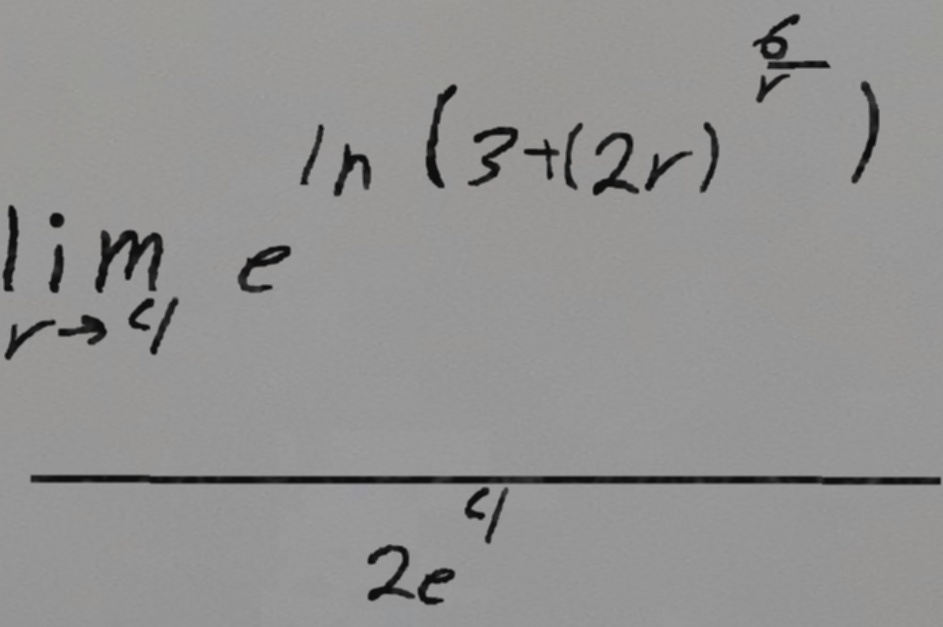 lim_{r→4} e^{ln(3+(2r)^{6/r})}
2e^4